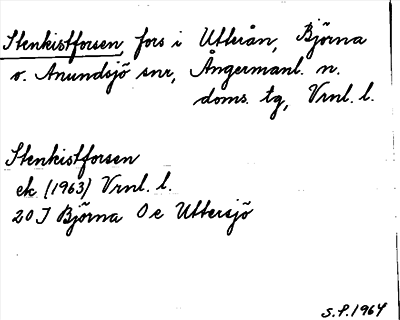 Stenkistforsen, fors i Utterån, Björna
o. Anundsjö snr, Ångermanl. n.
doms. tg, Vrnl. l.
Stenkistforsen
ek (1963) Vrnl. l.
20 J Björna O e Uttersjö
S.P. 1964